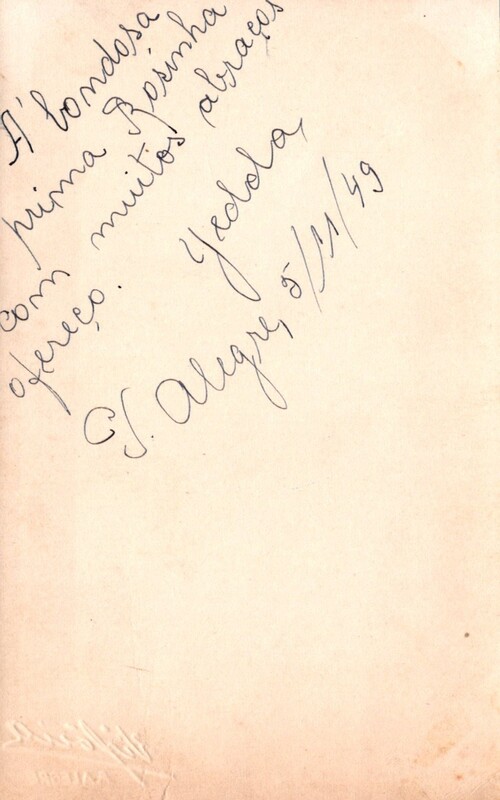 Á bondosa
prima Rosinha
com muitos abraços
ofereço. Yedda,
P. Alegre, 5/11/49